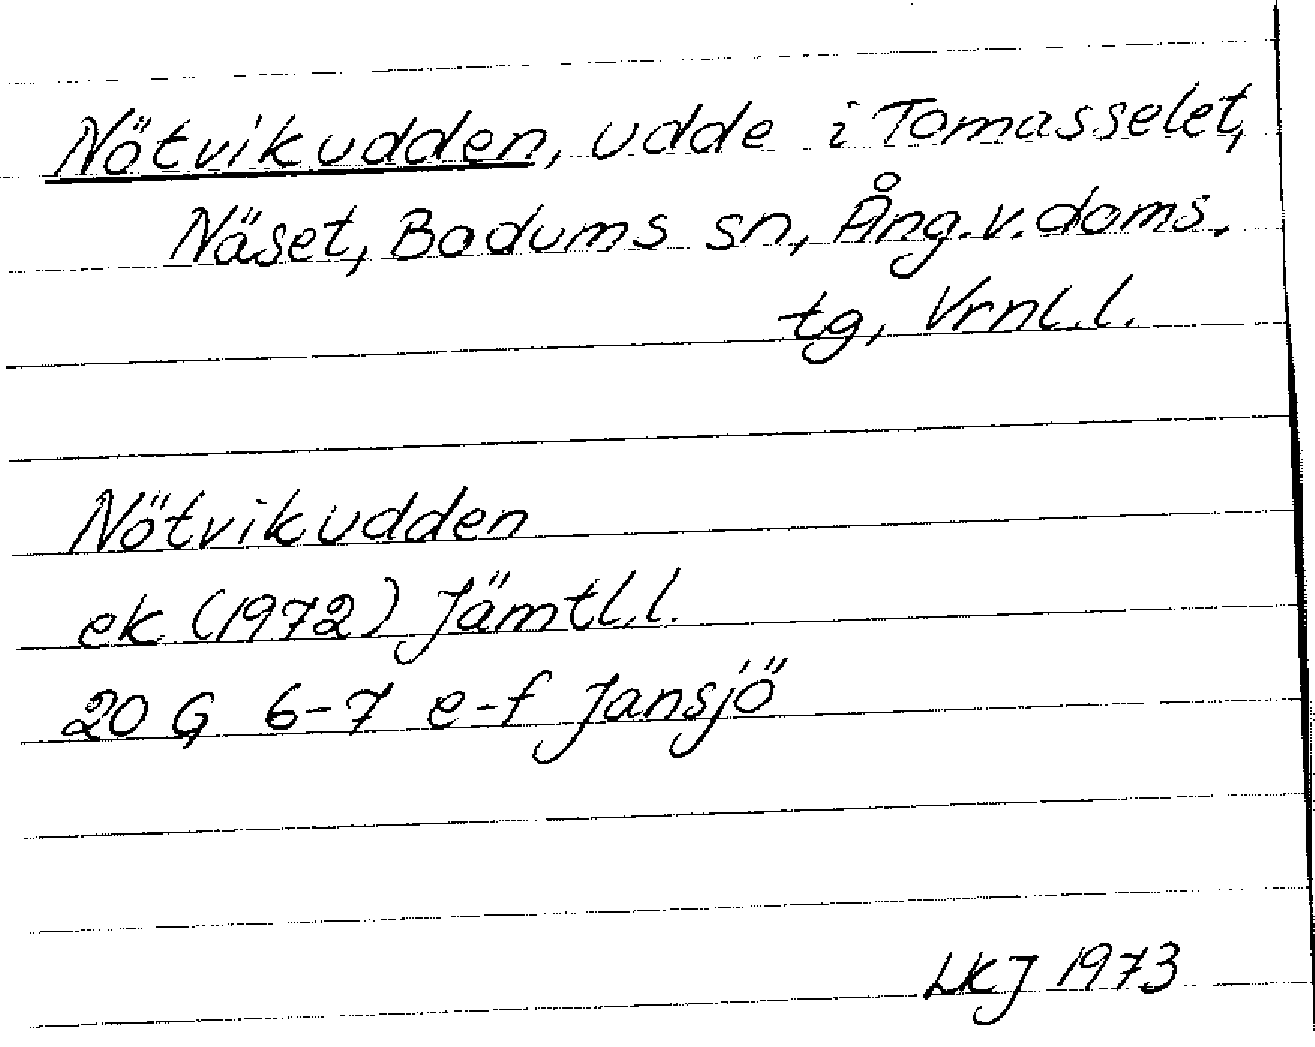 Nötvikudden, udde i Tomasselet,
Näset, Bodums sn, Ång.v.doms.
tg, Vrnl.l.
Nötvikudden
ek (1972) Jämtl.l.
20 G 6-7 e-f Jansjö
LKJ 1973